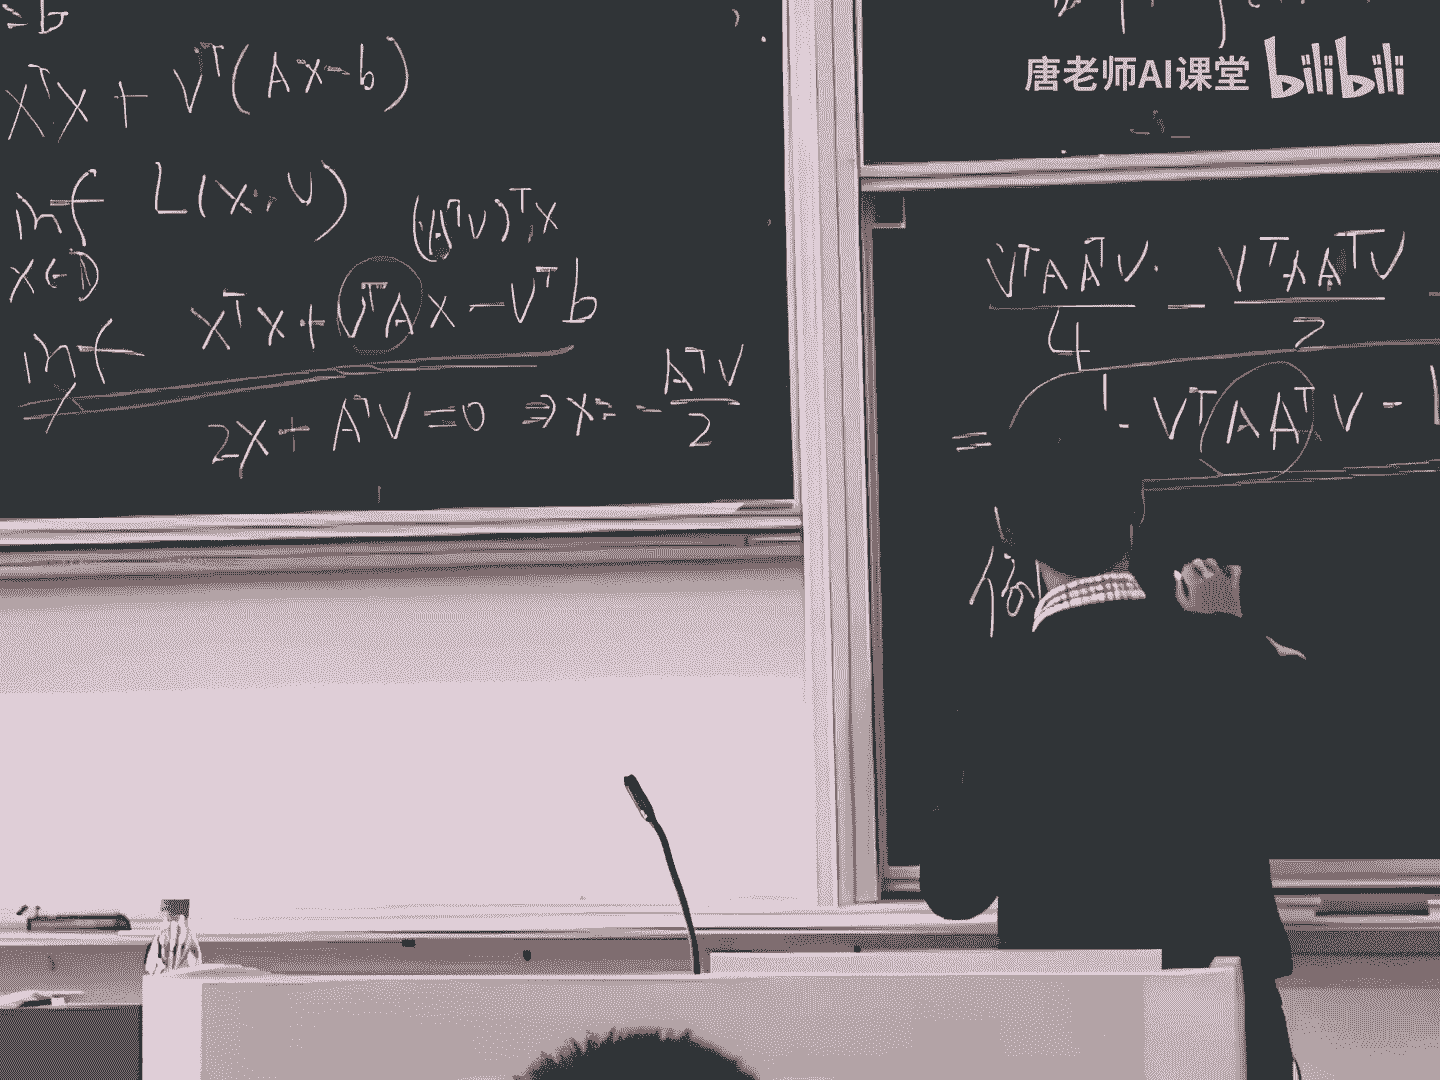 =b
X^T X + V^T(AX-b)
inf L(X, V)
X∈D
(A^T V)^T X
inf X^T X + V^T A X - V^T b
X
2X + A^T V = 0 ⇒ X = - A^T V / 2
唐老师AI课堂 bilibili
V^T A A^T V / 4 - V^T A A^T V / 2 -
= - V^T A A^T V -